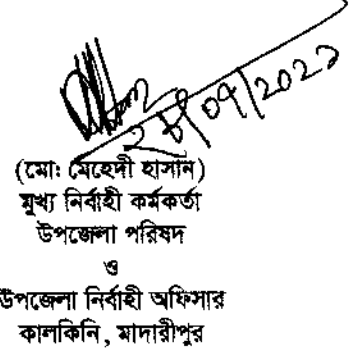 ২৮/০৭/২০২১
(মো: মেহেদী হাসান)
মুখ্য নির্বাহী কর্মকর্তা
উপজেলা পরিষদ
ও
উপজেলা নির্বাহী অফিসার
কালকিনি, মাদারীপুর